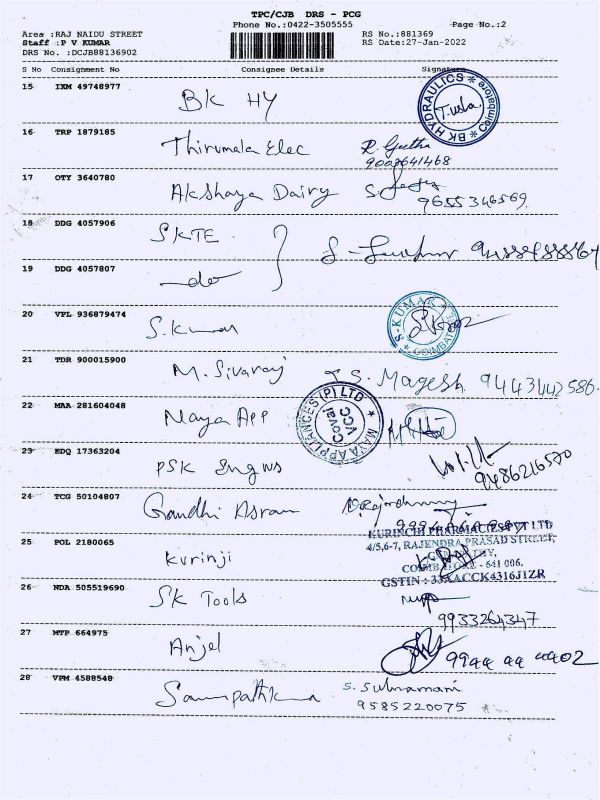 TPC/CJB DRS - PCG
Phone No.:0422-3505555
Page No.:2
Area :RAJ NAIDU STREET
Staff :P V KUMAR
DRS No. :DCJB88136902
RS No.:881369
RS Date:27-Jan-2022
S No Consignment No Consignee Details Signature
15 IXM 49748977 BK HY
BK HYDRAULICS Coimbatore
16 TRP 1879185 Thirumala Elec R. Geetha
17 OTY 3640780 Akshaya Dairy
9655346569
18 DDG 4057906 SKTE
19 DDG 4057807 -do-
20 VPL 936879474 S. Kumar
S-KUMAR COIMBATORE
21 TDR 900015900 M. Sivaraj S. Magesh 9443442586
22 MAA 281604048 Maya App
MAYA APPLIANCES (P) LTD VCC Covai
23 EDQ 17363204 PSK Engws
9486216570
24 TCG 50104807 Gandhi Asram
KURINCHI PHARMACIES PVT LTD
4/5,6-7, RAJENDRA PRASAD STREET,
25 POL 2180065 Kurinji
COIMBATORE - 641 006.
GSTIN : 33AACCK4316J1ZR
26 NDA 505519690 SK Tools
9933264347
27 MTP 664975 Anjel
28 VPM 4588548 Sampathkumar S. Subramani
9585220075